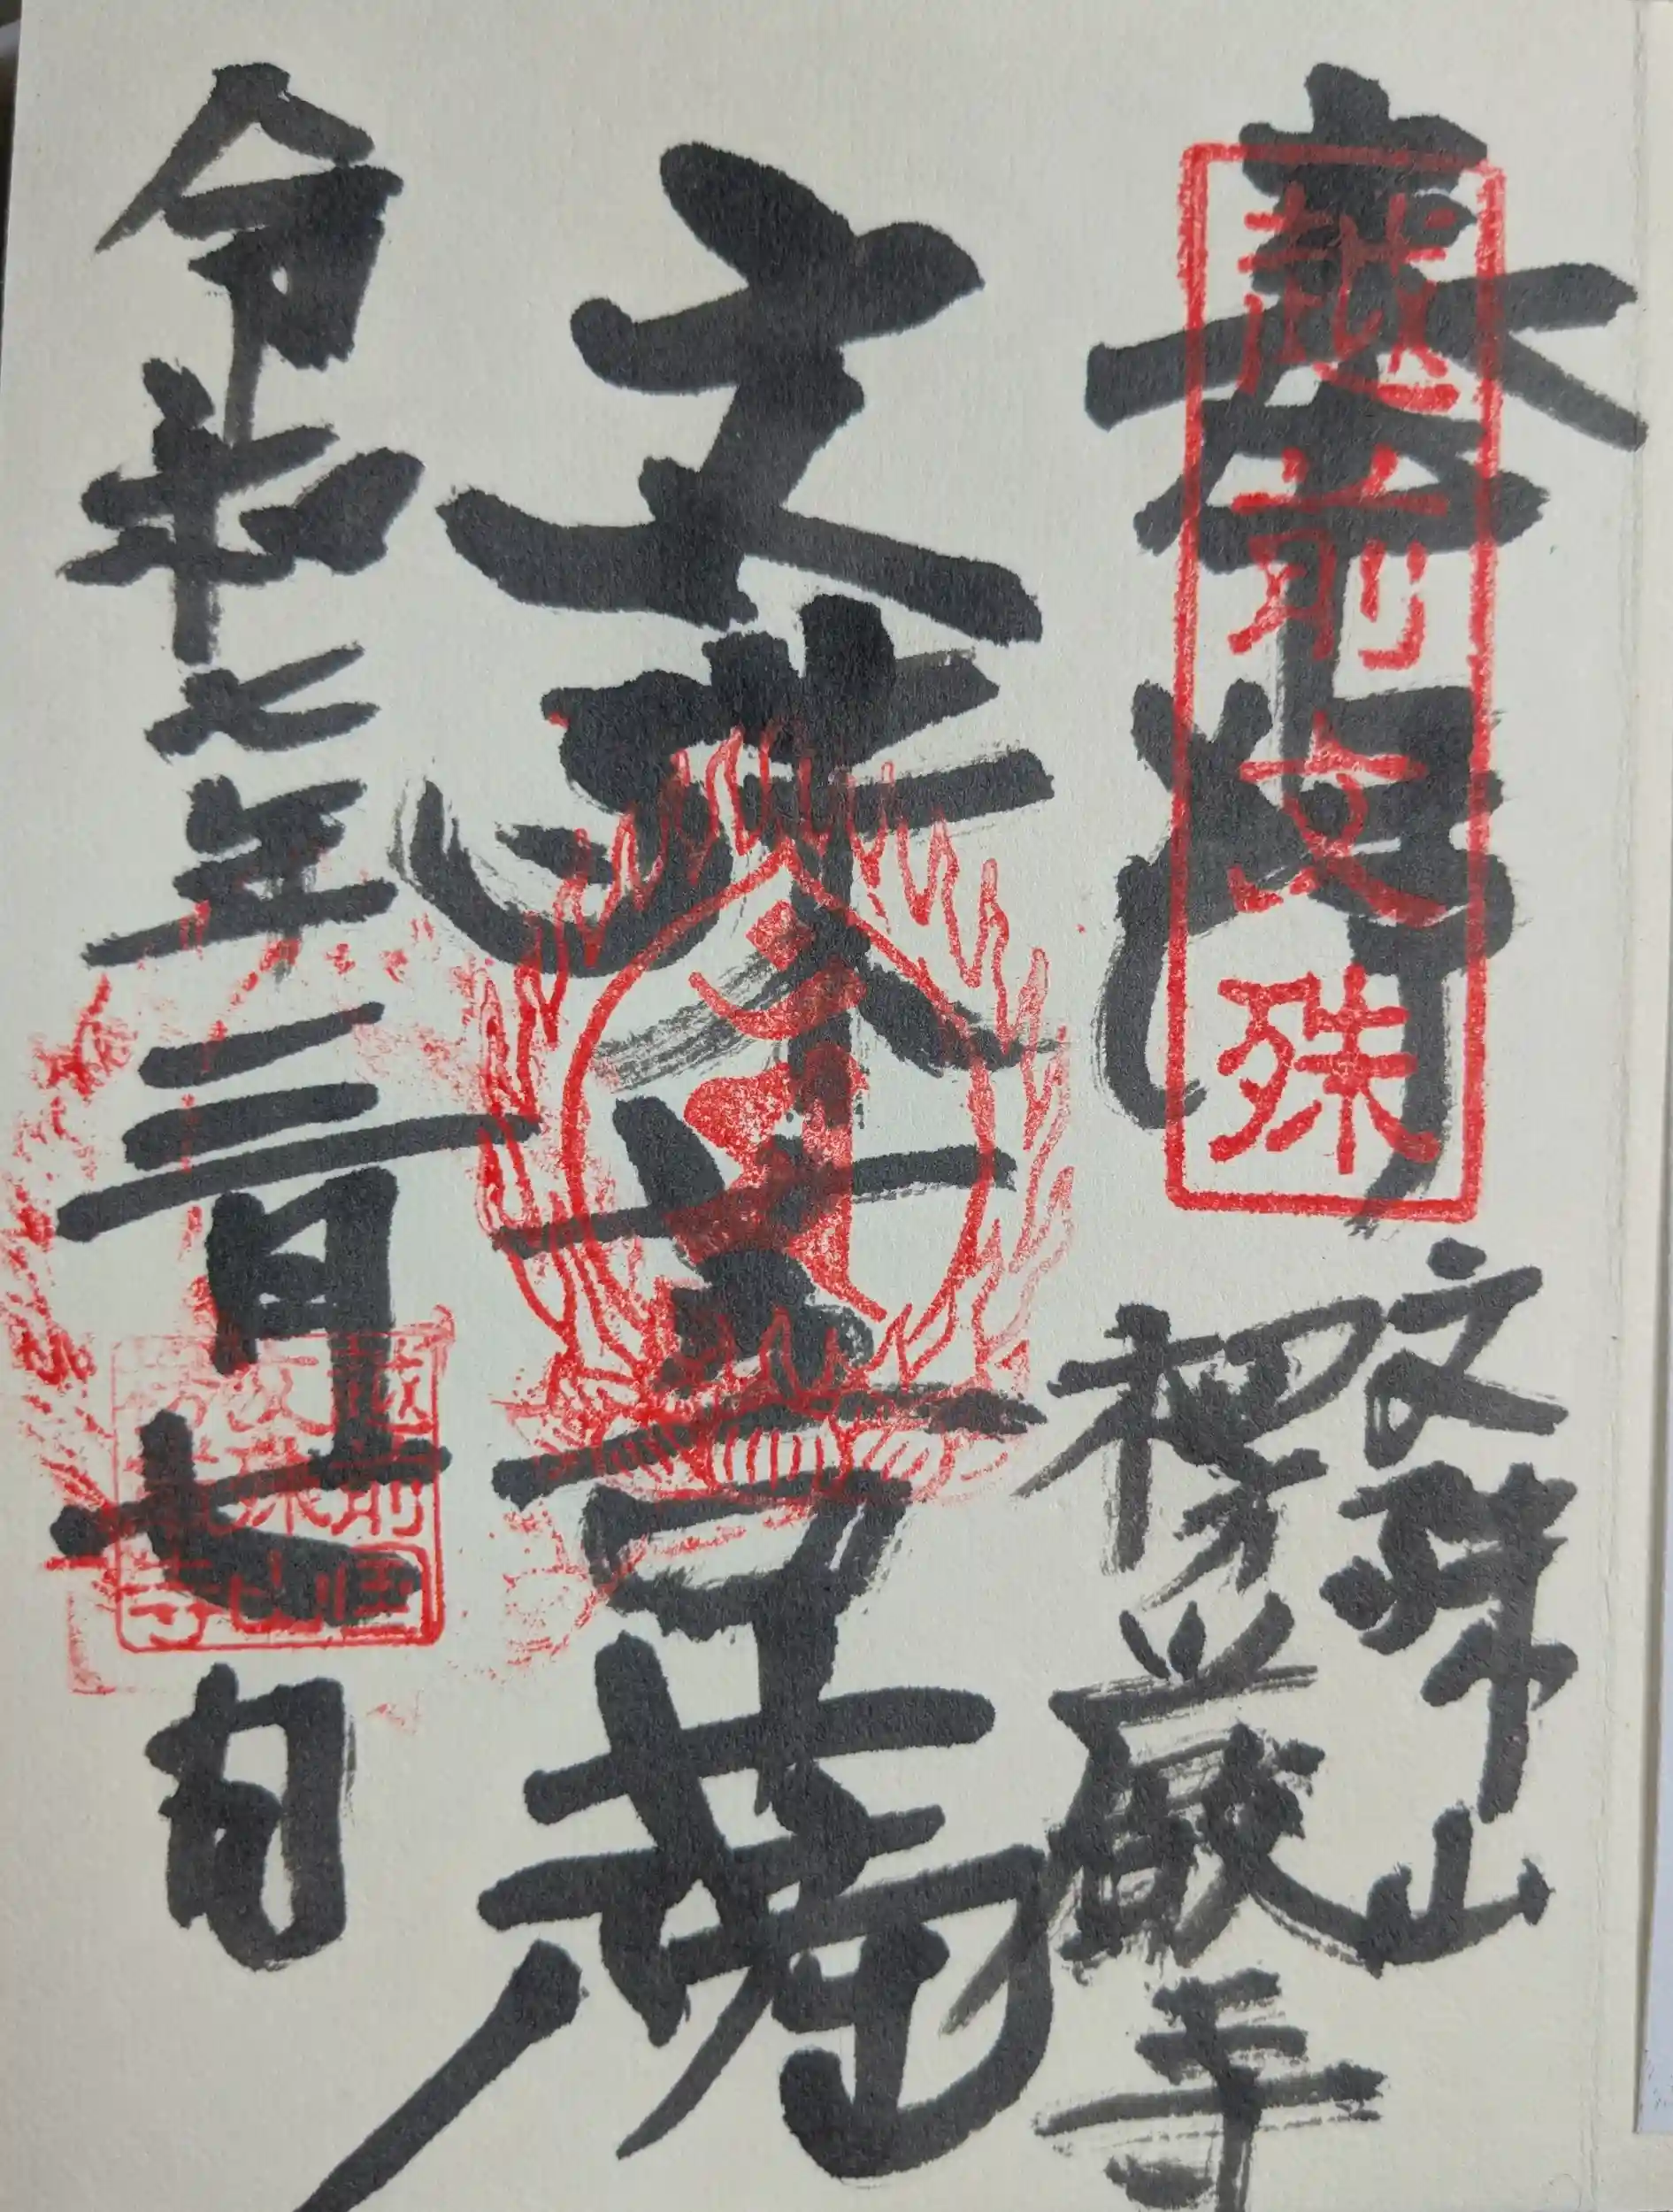 奉拝
越前文殊
文殊山
楞厳寺
文殊菩薩
令和七年三月七日
越前国
文殊山
楞厳寺